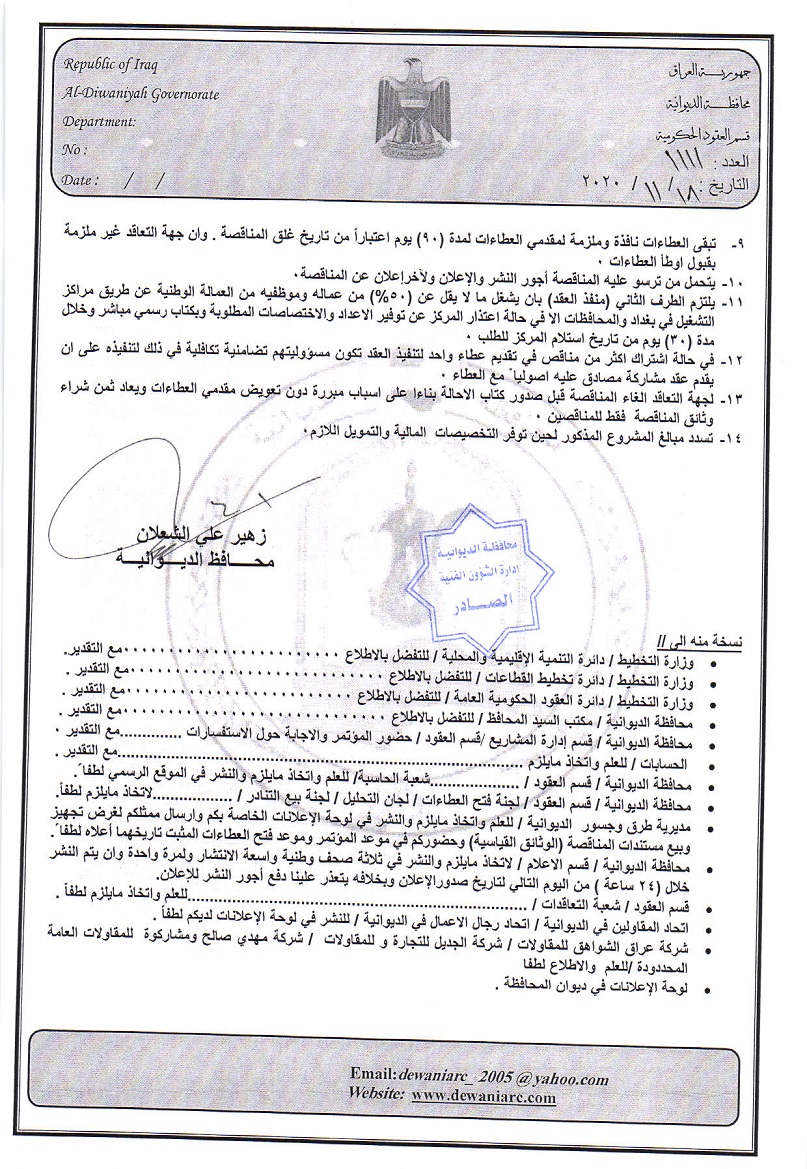 Republic of Iraq
Al-Diwaniyah Governorate
Department:
No :
Date : / /
جمهورية العراق
محافظة الديوانية
قسم العقود الحكومية
العدد : ١١١١
التاريخ : ١٨/ ١١/ ٢٠٢٠
٩- تبقى العطاءات نافذة وملزمة لمقدمي العطاءات لمدة (٩٠) يوم اعتباراً من تاريخ غلق المناقصة . وان جهة التعاقد غير ملزمة
بقبول اوطأ العطاءات ٠
١٠- يتحمل من ترسو عليه المناقصة أجور النشر والإعلان ولآخرإعلان عن المناقصة٠
١١- يلتزم الطرف الثاني (منفذ العقد) بان يشغل ما لا يقل عن (٥٠%) من عماله وموظفيه من العمالة الوطنية عن طريق مراكز
التشغيل في بغداد والمحافظات الا في حالة اعتذار المركز عن توفير الاعداد والاختصاصات المطلوبة وبكتاب رسمي مباشر وخلال
مدة (٣٠) يوم من تاريخ استلام المركز للطلب ٠
١٢- في حالة اشتراك اكثر من مناقص في تقديم عطاء واحد لتنفيذ العقد تكون مسؤوليتهم تضامنية تكافلية في ذلك لتنفيذه على ان
يقدم عقد مشاركة مصادق عليه اصولياً مع العطاء ٠
١٣- لجهة التعاقد الغاء المناقصة قبل صدور كتاب الاحالة بناءا على اسباب مبررة دون تعويض مقدمي العطاءات ويعاد ثمن شراء
وثائق المناقصة فقط للمناقصين ٠
١٤- تسدد مبالغ المشروع المذكور لحين توفر التخصيصات المالية والتمويل اللازم٠
زهير علي الشعلان
محافظ الديوانية
محافظة الديوانية
إدارة الشؤون الفنية
الصادر
نسخة منه الى //
• وزارة التخطيط / دائرة التنمية الإقليمية والمحلية / للتفضل بالاطلاع ٠٠٠٠٠٠٠٠٠٠٠٠٠٠٠٠٠٠٠٠٠مع التقدير.
• وزارة التخطيط / دائرة تخطيط القطاعات / للتفضل بالاطلاع ٠٠٠٠٠٠٠٠٠٠٠٠٠٠٠٠٠٠٠٠٠٠٠٠مع التقدير .
• وزارة التخطيط / دائرة العقود الحكومية العامة / للتفضل بالاطلاع ٠٠٠٠٠٠٠٠٠٠٠٠٠٠٠٠٠٠٠٠٠مع التقدير .
• محافظة الديوانية / مكتب السيد المحافظ / للتفضل بالاطلاع ٠٠٠٠٠٠٠٠٠٠٠٠٠٠٠٠٠٠٠٠٠٠٠٠مع التقدير .
• محافظة الديوانية / قسم إدارة المشاريع /قسم العقود / حضور المؤتمر والاجابة حول الاستفسارات .............مع التقدير ٠
• الحسابات / للعلم واتخاذ مايلزم ...............................................................مع التقدير .
• محافظة الديوانية / قسم العقود / ..................شعبة الحاسبة/ للعلم واتخاذ مايلزم والنشر في الموقع الرسمي لطفاً.
• محافظة الديوانية / قسم العقود / لجنة فتح العطاءات / لجان التحليل / لجنة بيع التنادر / ................لاتخاذ مايلزم لطفاً.
• مديرية طرق وجسور الديوانية / للعلم واتخاذ مايلزم والنشر في لوحة الإعلانات الخاصة بكم وارسال ممثلكم لغرض تجهيز
وبيع مستندات المناقصة (الوثائق القياسية) وحضوركم في موعد المؤتمر وموعد فتح العطاءات المثبت تاريخهما أعلاه لطفاً.
• محافظة الديوانية / قسم الاعلام / لاتخاذ مايلزم والنشر في ثلاثة صحف وطنية واسعة الانتشار ولمرة واحدة وان يتم النشر
خلال (٢٤ ساعة ) من اليوم التالي لتاريخ صدورالإعلان وبخلافه يتعذر علينا دفع أجور النشر للإعلان.
• قسم العقود / شعبة التعاقدات / .......................................................للعلم واتخاذ مايلزم لطفاً .
• اتحاد المقاولين في الديوانية / اتحاد رجال الاعمال في الديوانية / للنشر في لوحة الإعلانات لديكم لطفاً .
• شركة عراق الشواهق للمقاولات / شركة الجديل للتجارة و للمقاولات / شركة مهدي صالح ومشاركوة للمقاولات العامة
المحددودة /للعلم والاطلاع لطفا
• لوحة الإعلانات في ديوان المحافظة .
Email:dewaniarc_ 2005 @yahoo.com
Website: www.dewaniarc.com